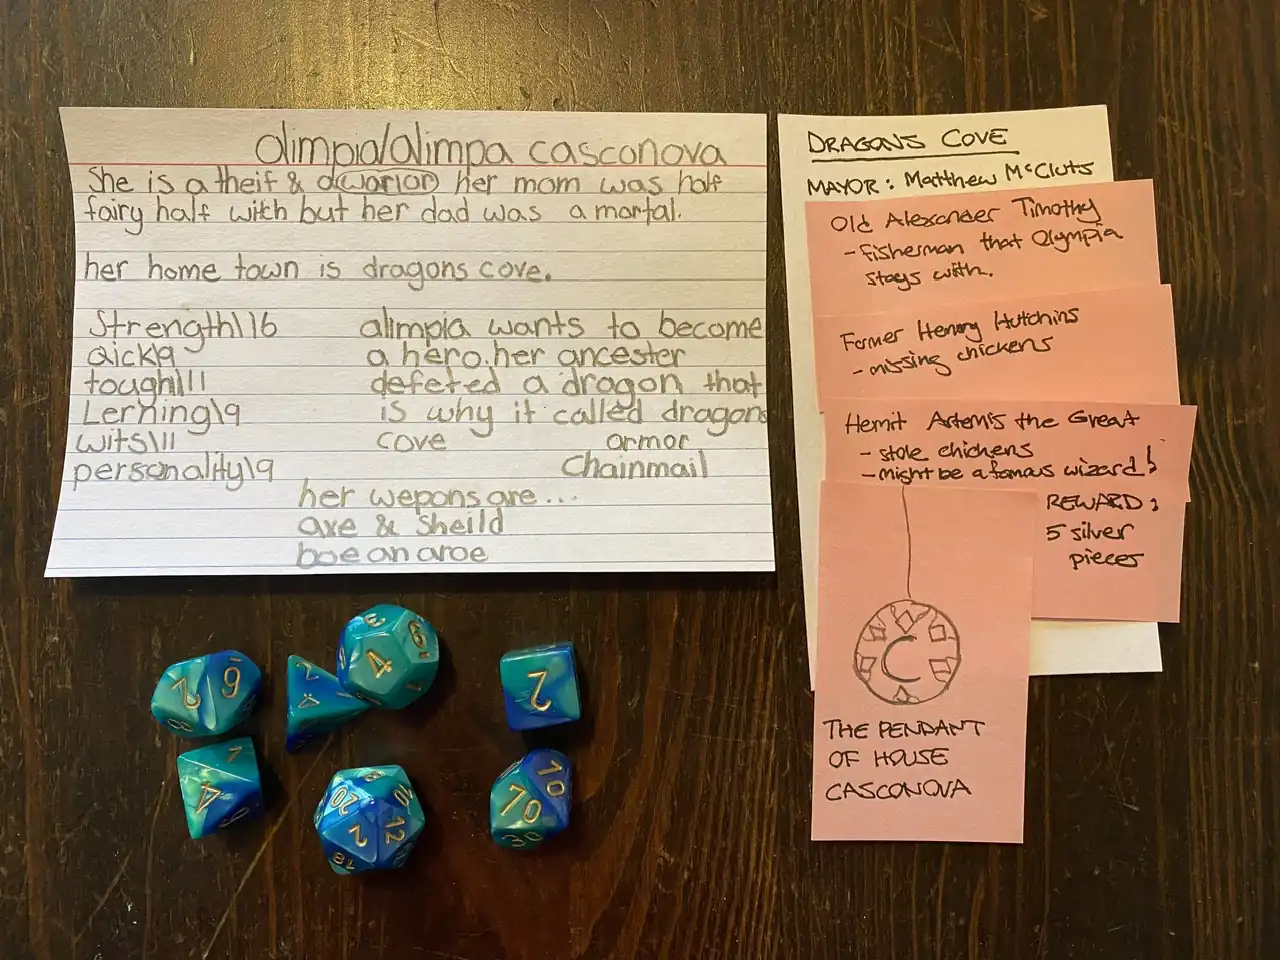 olimpia/alimpa casconova
She is a theif & a warior her mom was half
fairy half witch but her dad was a mortal.
her home town is dragons cove.
Strength\16
qick\9
tough\11
Lerning\9
wits\11
personality\9
alimpia wants to become
a hero. her ancester
defeted a dragon that
is why it called dragons
cove
armor
Chainmail
her wepons are...
axe & Sheild
boe an aroe
DRAGONS COVE
MAYOR: Matthew McCluts
Old Alexander Timothy
- fisherman that Olympia
stays with.
Farmer Henry Hutchins
- missing chickens
Hermit Artemis the Great
- stole chickens
- might be a famous wizard!
REWARD:
5 silver
pieces
C
THE PENDANT
OF HOUSE
CASCONOVA
2
6
8
2
4
3
6
4
1
2
1
4
8
20
10
2
12
18
10
70
30